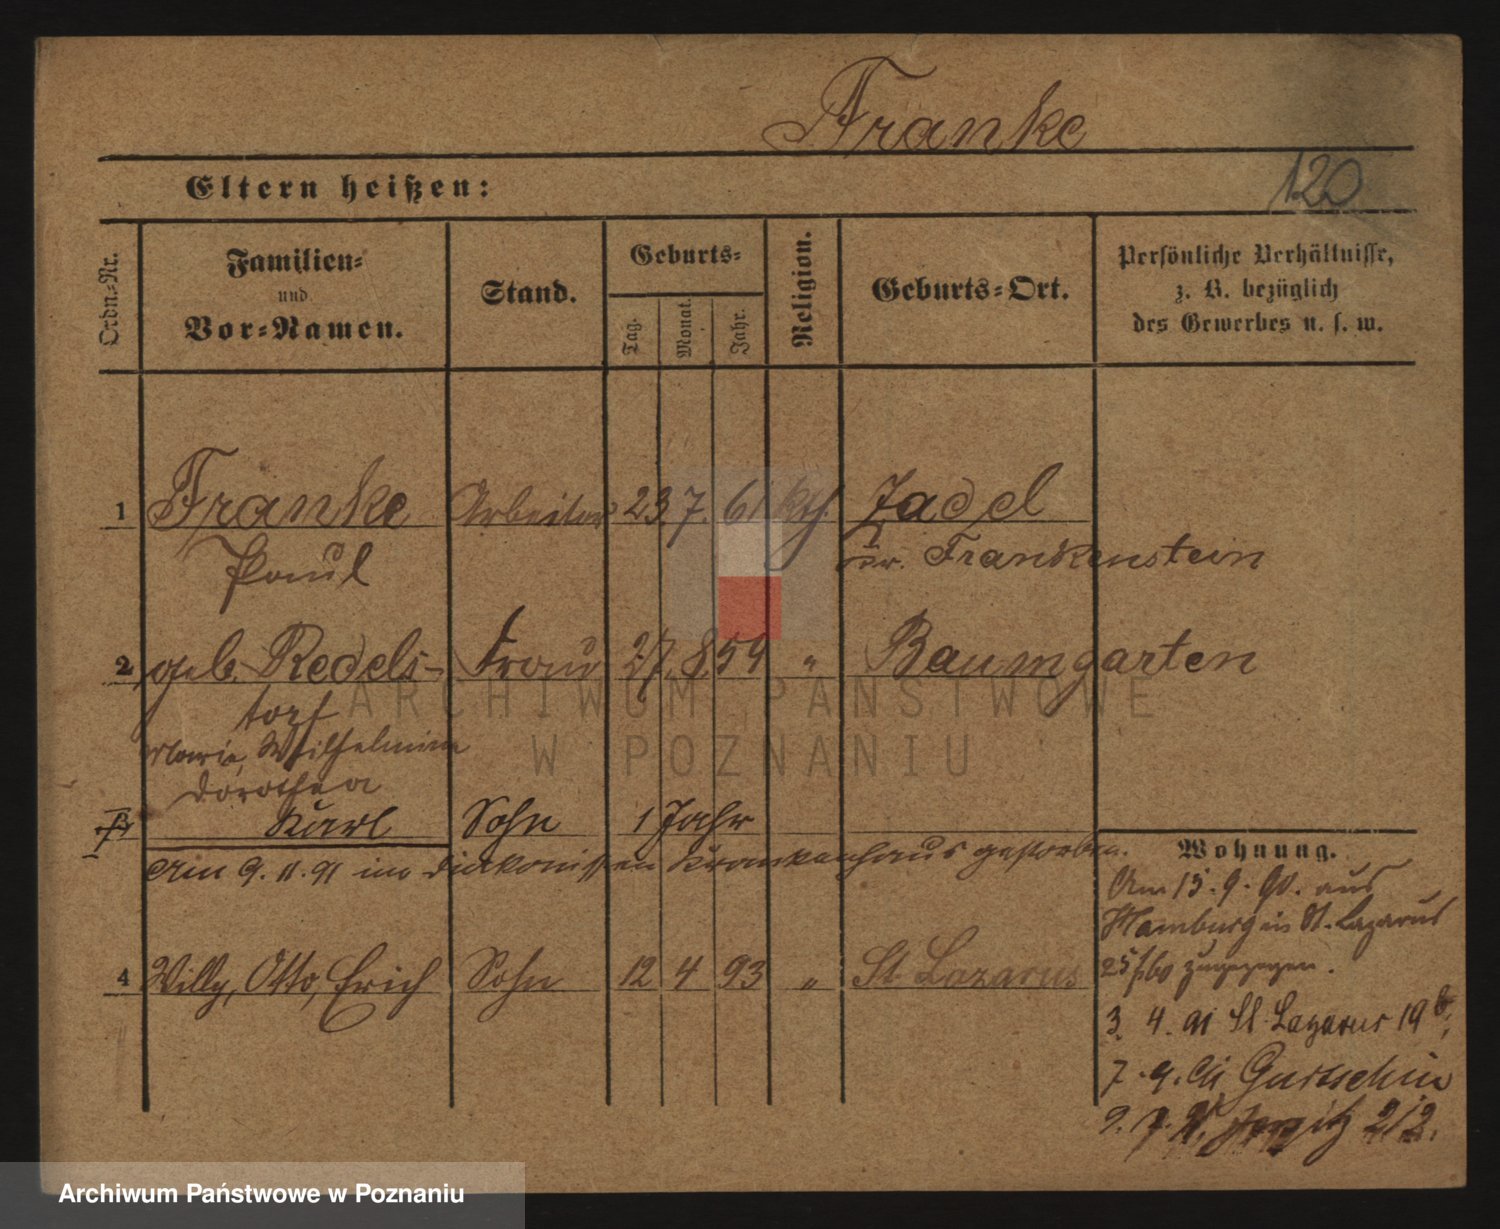 Franke
120
Eltern heißen:
Ordn.-Nr.
Familien-
und
Vor-Namen.
Stand.
Geburts-
Tag.
Monat.
Jahr.
Religion.
Geburts-Ort.
Persönliche Verhältnisse,
z. B. bezüglich
des Gewerbes u. s. w.
1 Franke Arbeiter 23. 7. 61 Kth. Zadel
Paul
Kr. Frankenstein
2 geb. Redels- Frau 27. 8. 54 " Baumgarten
topf
Marie, Wilhelmine
Dorothea
3 Karl Sohn 1 Jahr
Am 9. 11. 91 im Diakonissen Krankenhaus gestorben.
4 Willy, Otto, Erich Sohn 12 4 93 " St. Lazarus
Wohnung.
Am 15. 9. 90. aus
Hamburg in St. Lazarus
zugezogen.
3. 4. 91 St. Lazarus 19
Gurtschin
2/2.
ARCHIWUM PAŃSTWOWE
W POZNANIU
Archiwum Państwowe w Poznaniu